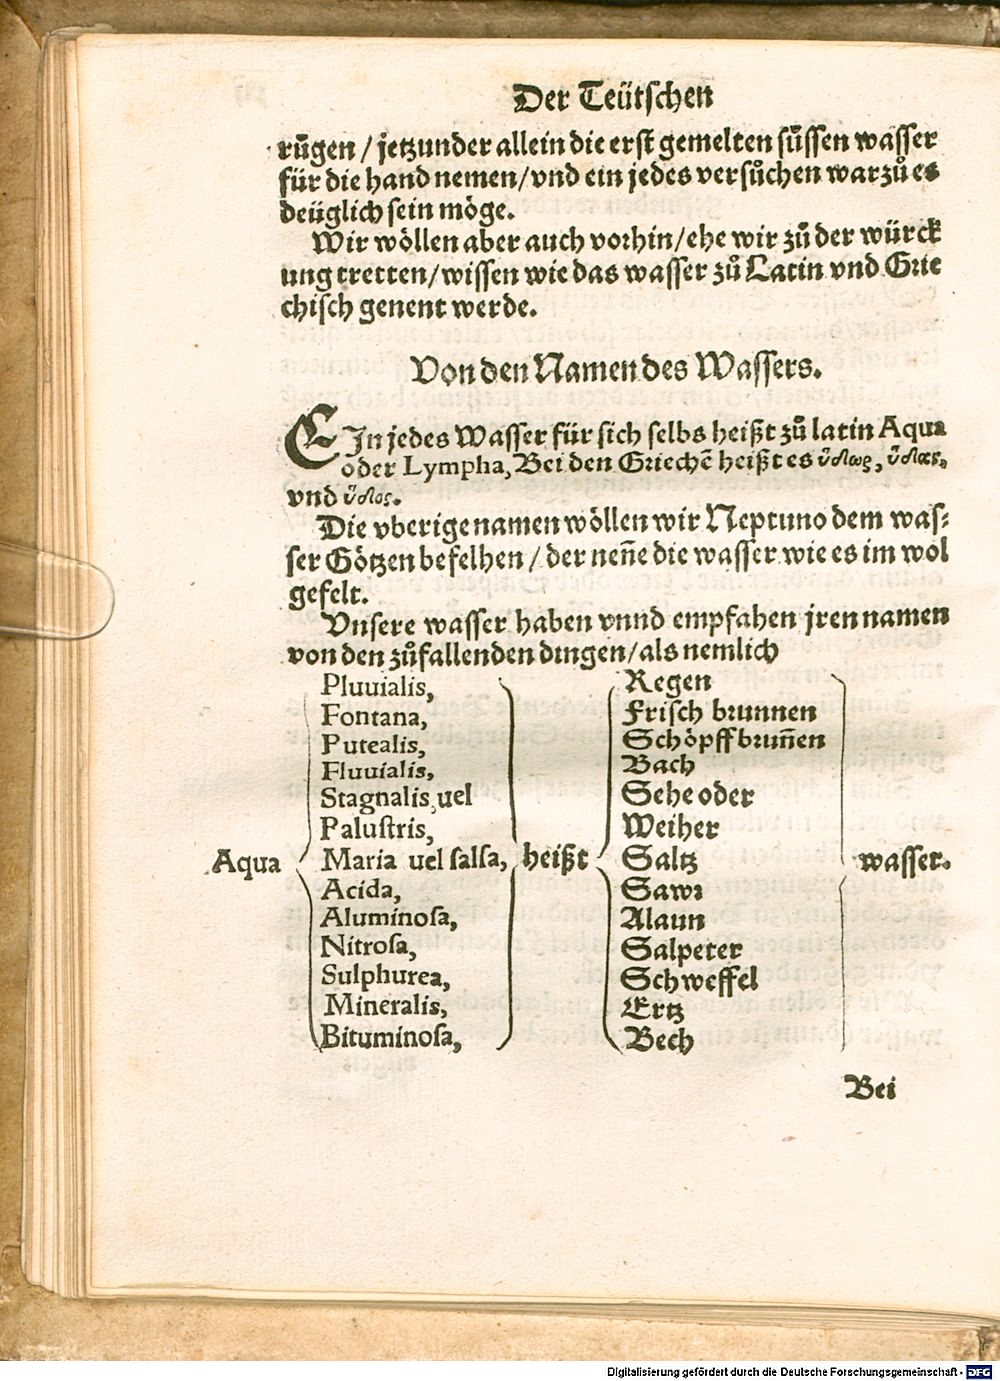 Der Teütschen
rům̃gen / jetzunder allein die erst gemelten süssen wasser
für die hand nemen/vnd ein jedes versůchen warzů es
deüglich sein möge.
Wir wöllen aber auch vorhin/ehe wir zů der würck
ung tretten/wissen wie das wasser zů Latin vnd Grie
chisch genent werde.
Von den Namen des Wassers.
EIn jedes Wasser für sich selbs heißt zů latin Aqua
oder Lympha, Bei den Griechẽ heißt es ὕδωρ, ὕδας,
vnd ὕδος.
Die vberige namen wöllen wir Neptuno dem was⸗
ser Götzen befelhen / der neñe die wasser wie es im wol
gefelt.
Vnsere wasser haben vnnd empfahen jren namen
von den zůfallenden dingen/als nemlich
Pluuialis, Regen
Fontana, Frisch brunnen
Putealis, Schöpffbruñen
Fluuialis, Bach
Stagnalis uel Sehe oder
Palustris, Weiher
Aqua Maria uel salsa, heißt Saltz wasser.
Acida, Sawr
Aluminosa, Alaun
Nitrosa, Salpeter
Sulphurea, Schweffel
Mineralis, Ertz
Bituminosa, Bech
Bei
Digitalisierung gefördert durch die Deutsche Forschungsgemeinschaft - DFG